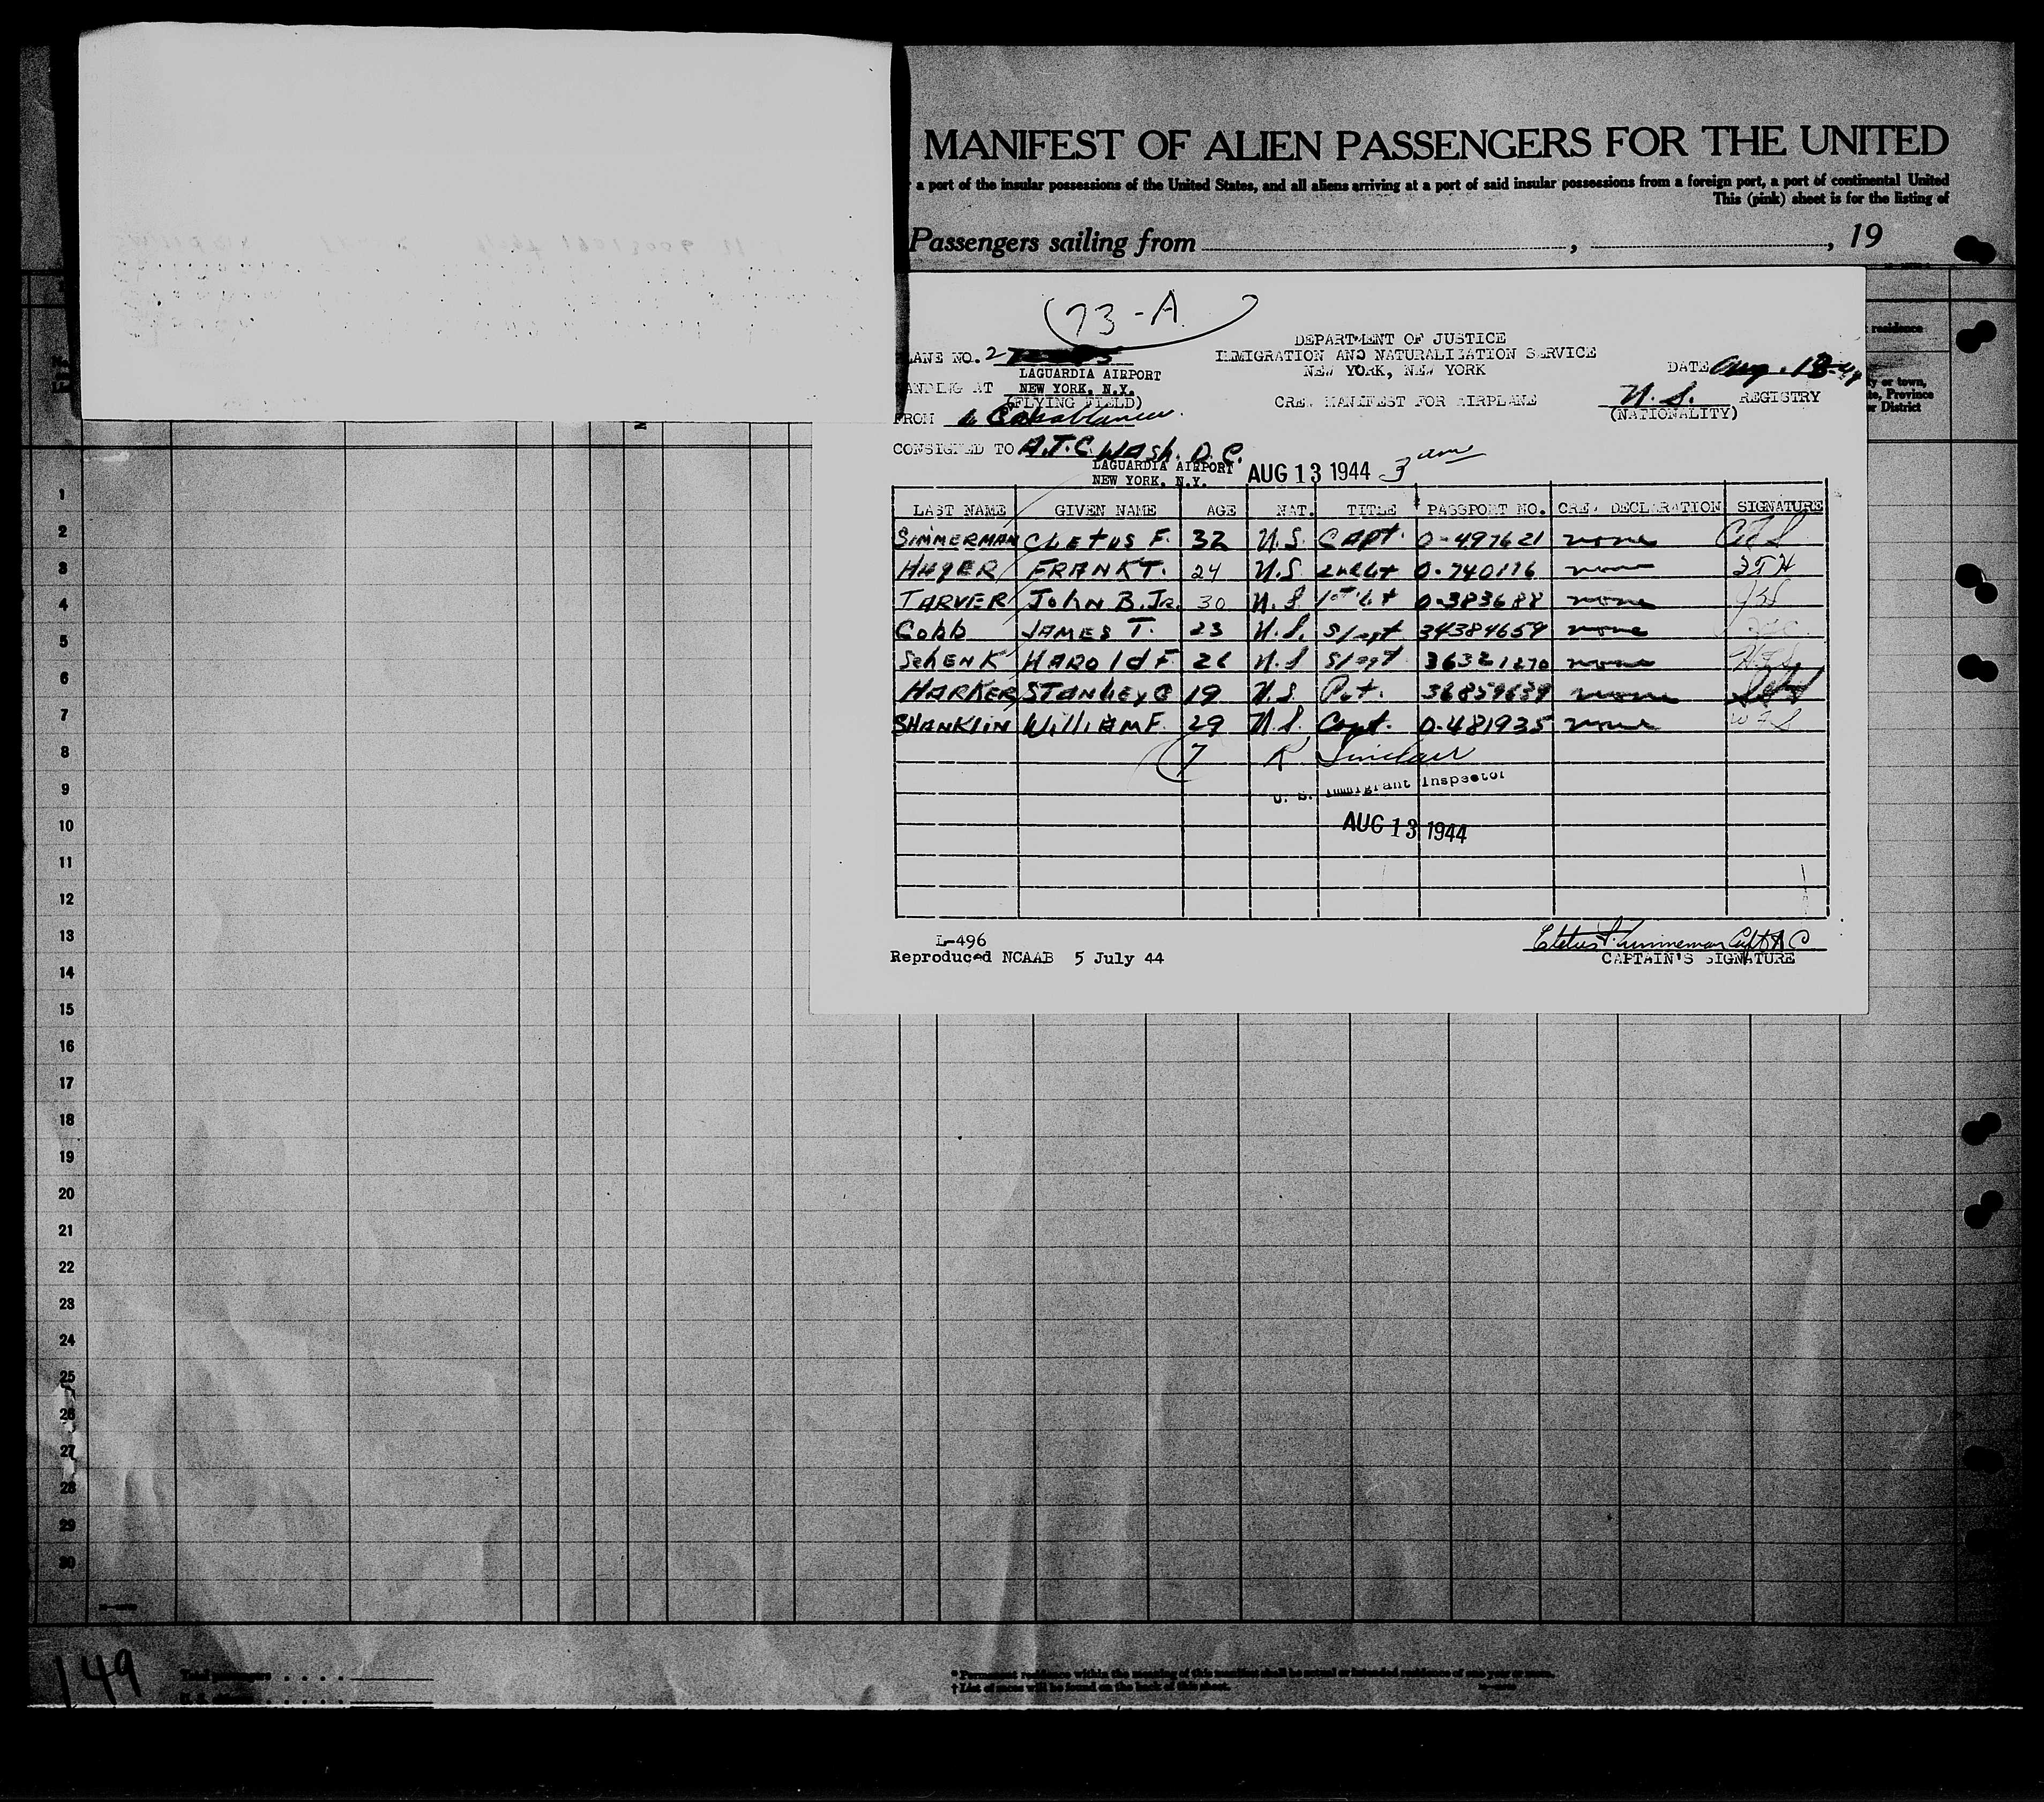 MANIFEST OF ALIEN PASSENGERS FOR THE UNITED
a port of the insular possessions of the United States, and all aliens arriving at a port of said insular possessions from a foreign port, a port of continental United
This (pink) sheet is for the listing of
Passengers sailing from , , 19
73-A
DEPARTMENT OF JUSTICE
IMMIGRATION AND NATURALIZATION SERVICE
NEW YORK, NEW YORK
LANE NO. 2
DATE Aug. 13-44
LAGUARDIA AIRPORT
ANDING AT NEW YORK, N.Y.
(FLYING FIELD)
CREW MANIFEST FOR AIRPLANE
U.S. REGISTRY
(NATIONALITY)
FROM Casablanca.
CONSIGNED TO A.T.C. Wash. D.C.
LAGUARDIA AIRPORT
NEW YORK, N.Y.
AUG 13 1944 3 am
LAST NAME GIVEN NAME AGE NAT. TITLE PASSPORT NO. CREW DECLARATION SIGNATURE
SIMMERMAN CLETUS F. 32 U.S. CAPT. 0-497621 none CFS
HUGER FRANK T. 24 U.S. 2nd Lt 0-740116 none FTH
TARVER John B. Jr. 30 U.S. 1st Lt 0-383688 none
Cobb JAMES T. 23 U.S. S/sgt 34384659 none
SchENK HAROld F. 26 U.S. S/sgt 36321270 none HFS
HARKER STANLEY C 19 U.S. Pvt. 36859639 none
SHANKLIN WILLIAM F. 29 U.S. Capt. 0-481935 none WFS
7 K Sinclair
U. S. Immigrant Inspector
AUG 13 1944
L-496
Reproduced NCAAB 5 July 44
Cletus F. Simmerman Capt A C
CAPTAIN'S SIGNATURE
residence
y or town,
te, Province
or District
1
2
3
4
5
6
7
8
9
10
11
12
13
14
15
16
17
18
19
20
21
22
23
24
25
26
27
28
29
30
149
Total passengers
* Permanent residence within the meaning of this manifest shall be actual or intended residence of one year or more.
† List of races will be found on the back of this sheet.